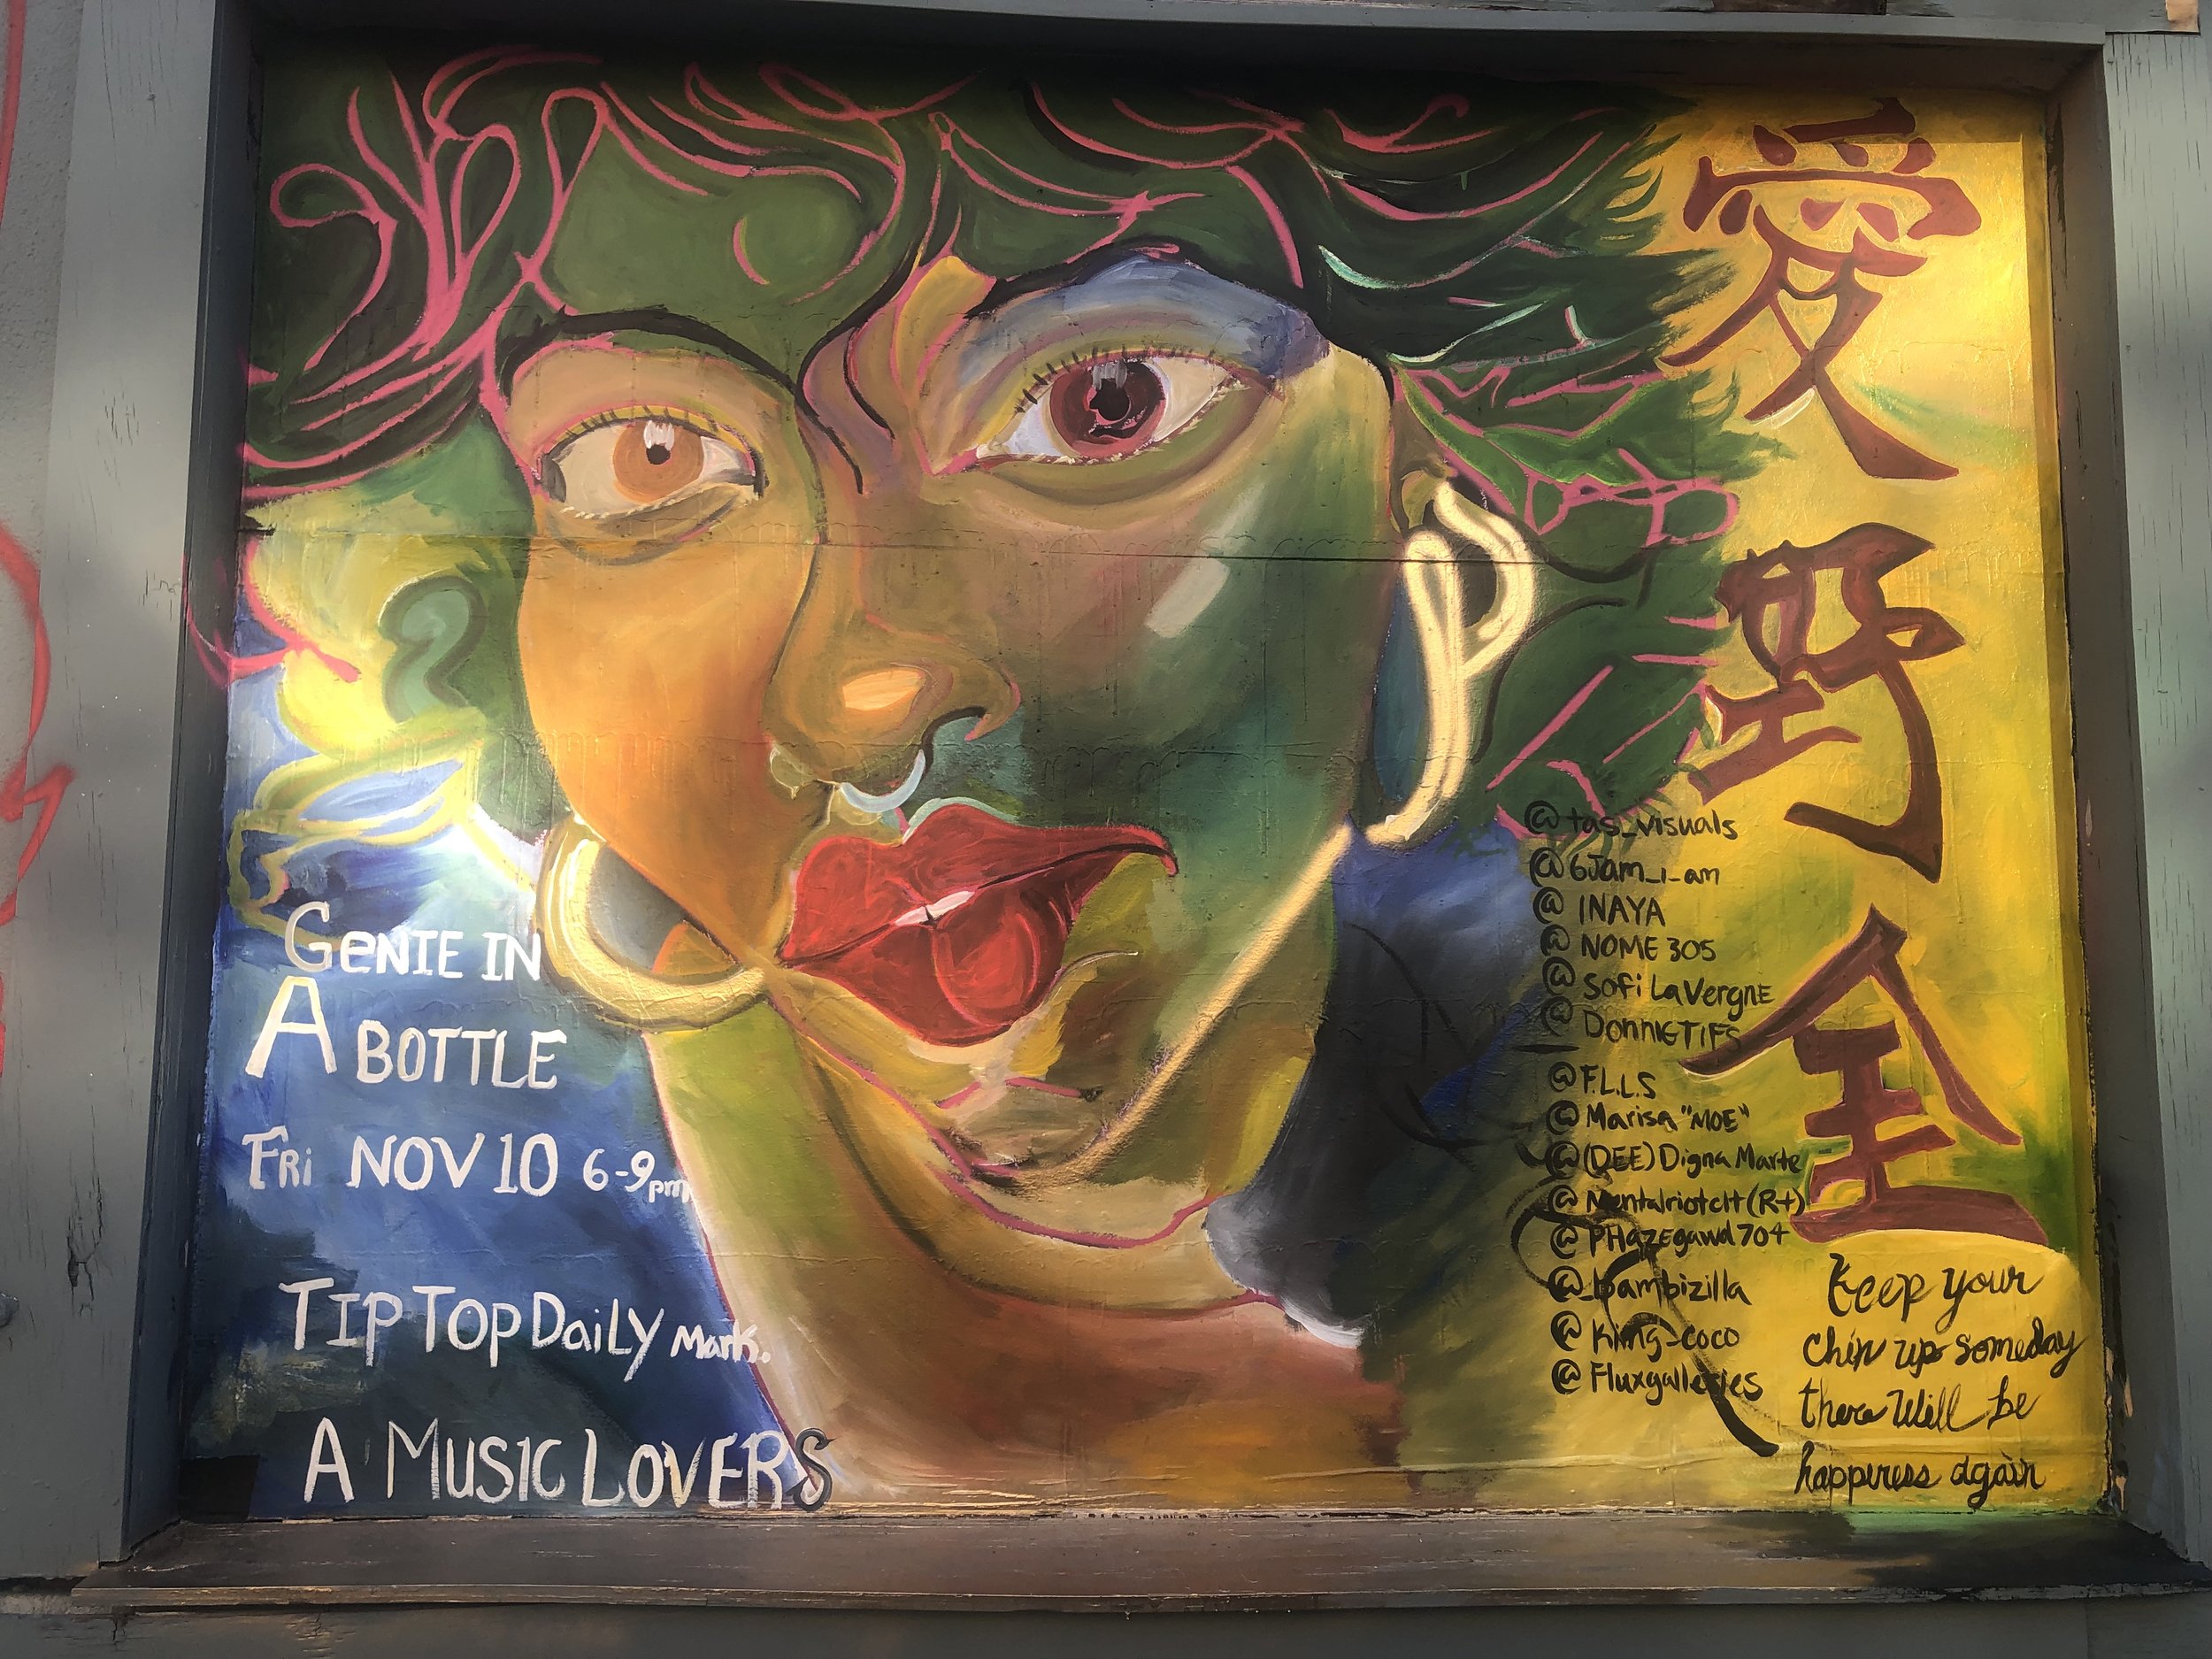 GeNIE IN
A BOTTLE
FRi NOV 10 6-9pm
TIP TOP DaiLy Mark.
A MUSIC LOVERS
愛
野
全
@tas_visuals
@6Jam_i_am
@ INAYA
@ NOME 305
@ Sofi LaVergnE
@ DonniETIFS
@ F.L.L.S
@ Marisa "MOE"
@(DEE) Digna Marte
@ Mentalriotclt (R+)
@ PHazEgawd704
@_bambizilla
@ King_coco
@ Fluxgalleries
Keep your
chin up someday
there will be
happiness again